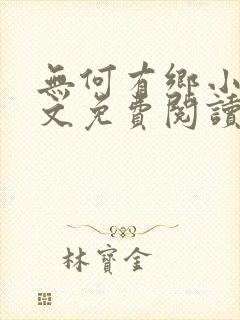 無何有鄉小
文免費閱讀
林寶金